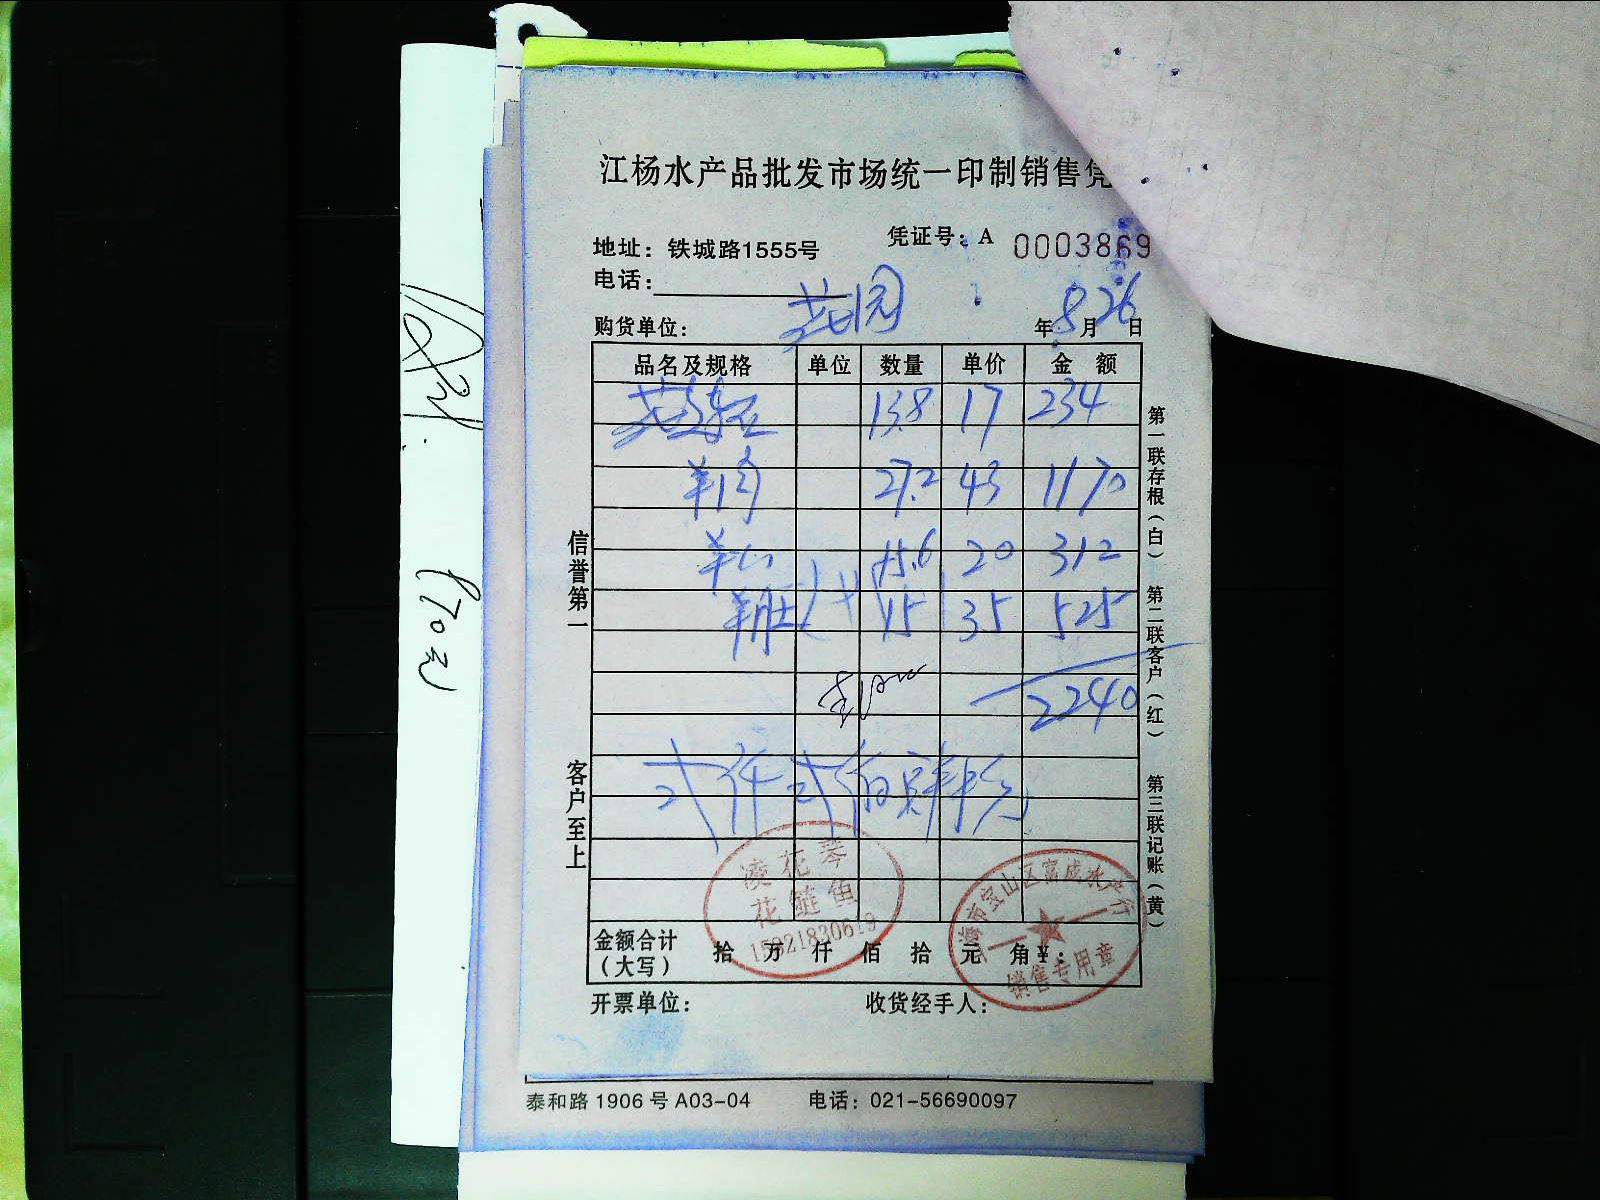 江杨水产品批发市场统一印制销售凭
地址：铁城路1555号
凭证号：A 0003869
电话：
购货单位： 花园
年 8 月 26 日
品名及规格 单位 数量 单价 金 额
13.8 17 234
羊肉 27.2 43 1170
羊心 15.6 20 312
羊肚 15 35 525
2240
弍仟弍佰肆拾
信誉第一
客户至上
第一联存根（白）
第二联客户（红）
第三联记账（黄）
凌花琴
花鲢鱼
15921830619
上海市宝山区富成水产行
销售专用章
金额合计（大写） 拾 万 仟 佰 拾 元 角 ¥：
开票单位：
收货经手人：
泰和路 1906 号 A03-04
电话：021-56690097
170元